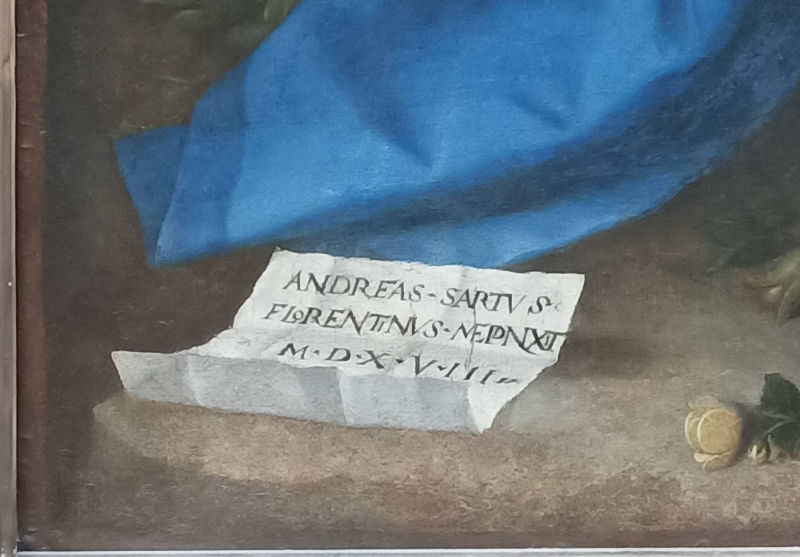 ANDREAS · SARTVS
FLORENTINVS · ME PINXIT
M · D · X · V · IIII